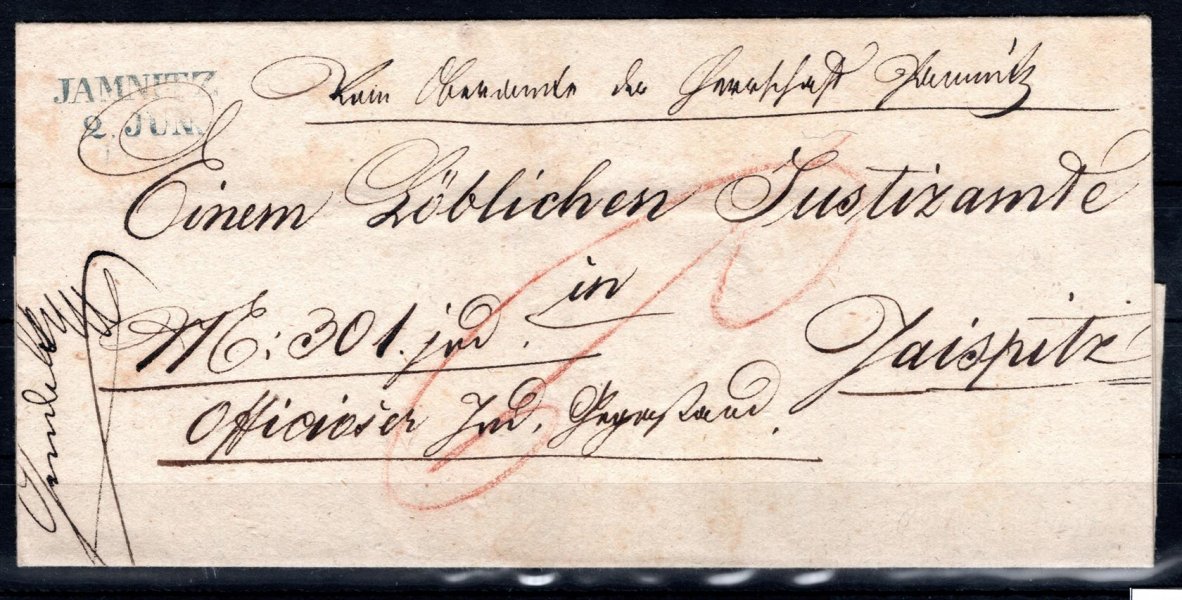 JAMNITZ
2. JUN.
Vom Oberamte der Herrschaft Jamnitz
Einem Löblichen Justizamte
in
Jaispitz
NE: 301. jud.
Officioser Jud. Gegenstand.